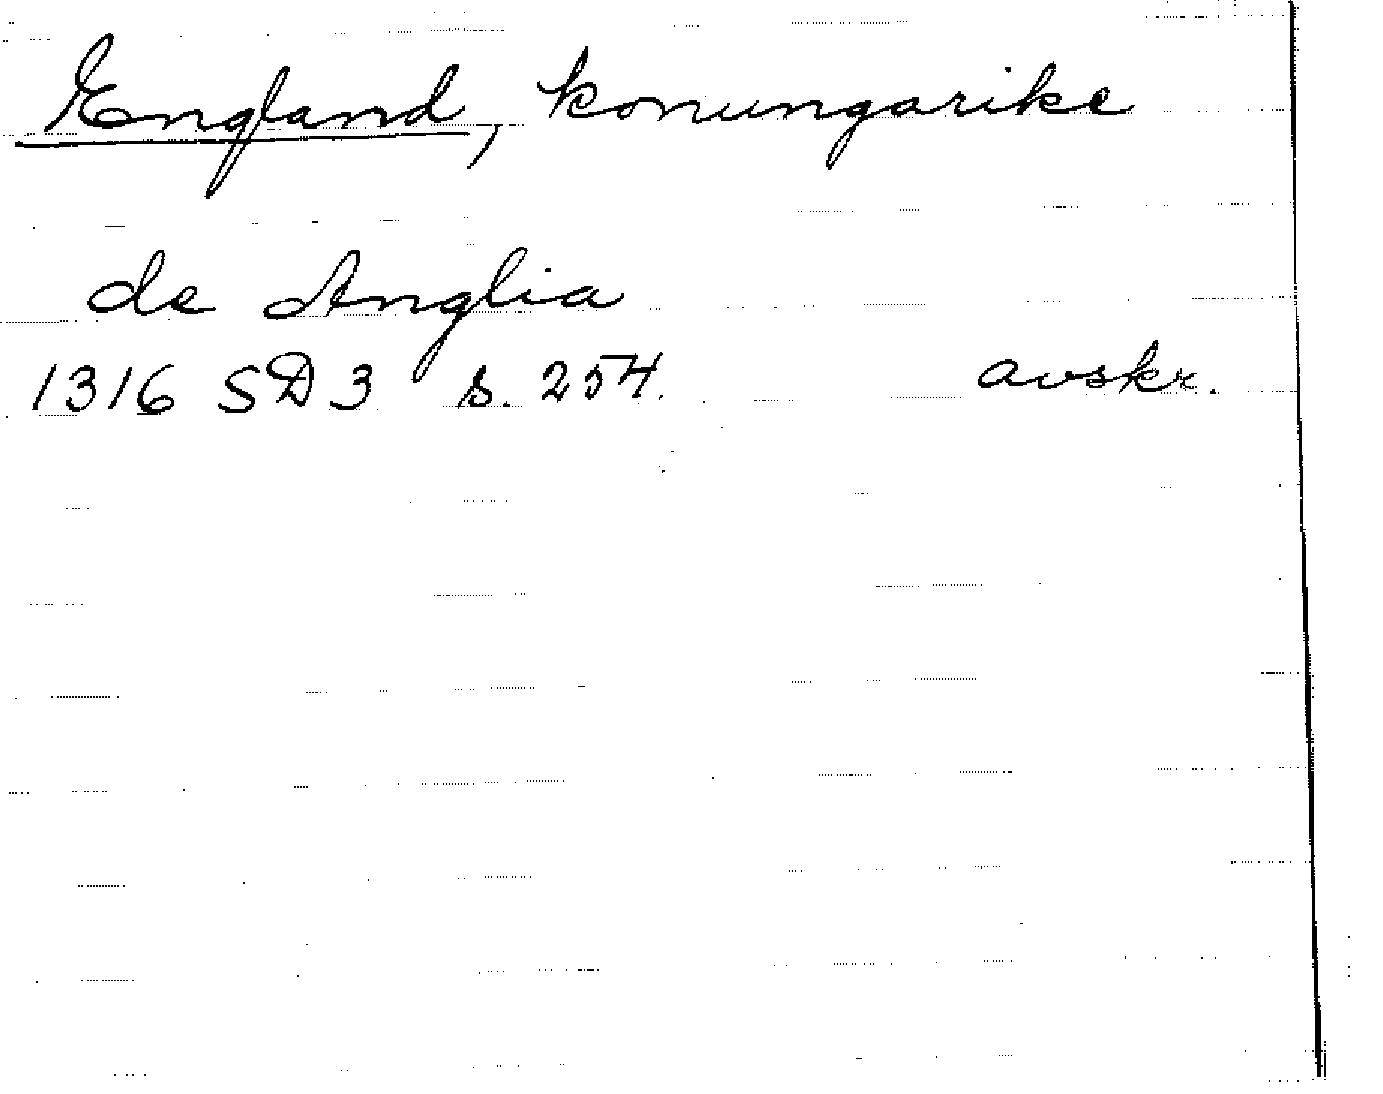 England, konungarike
de Anglia
1316 SD 3 s. 254. avskr.